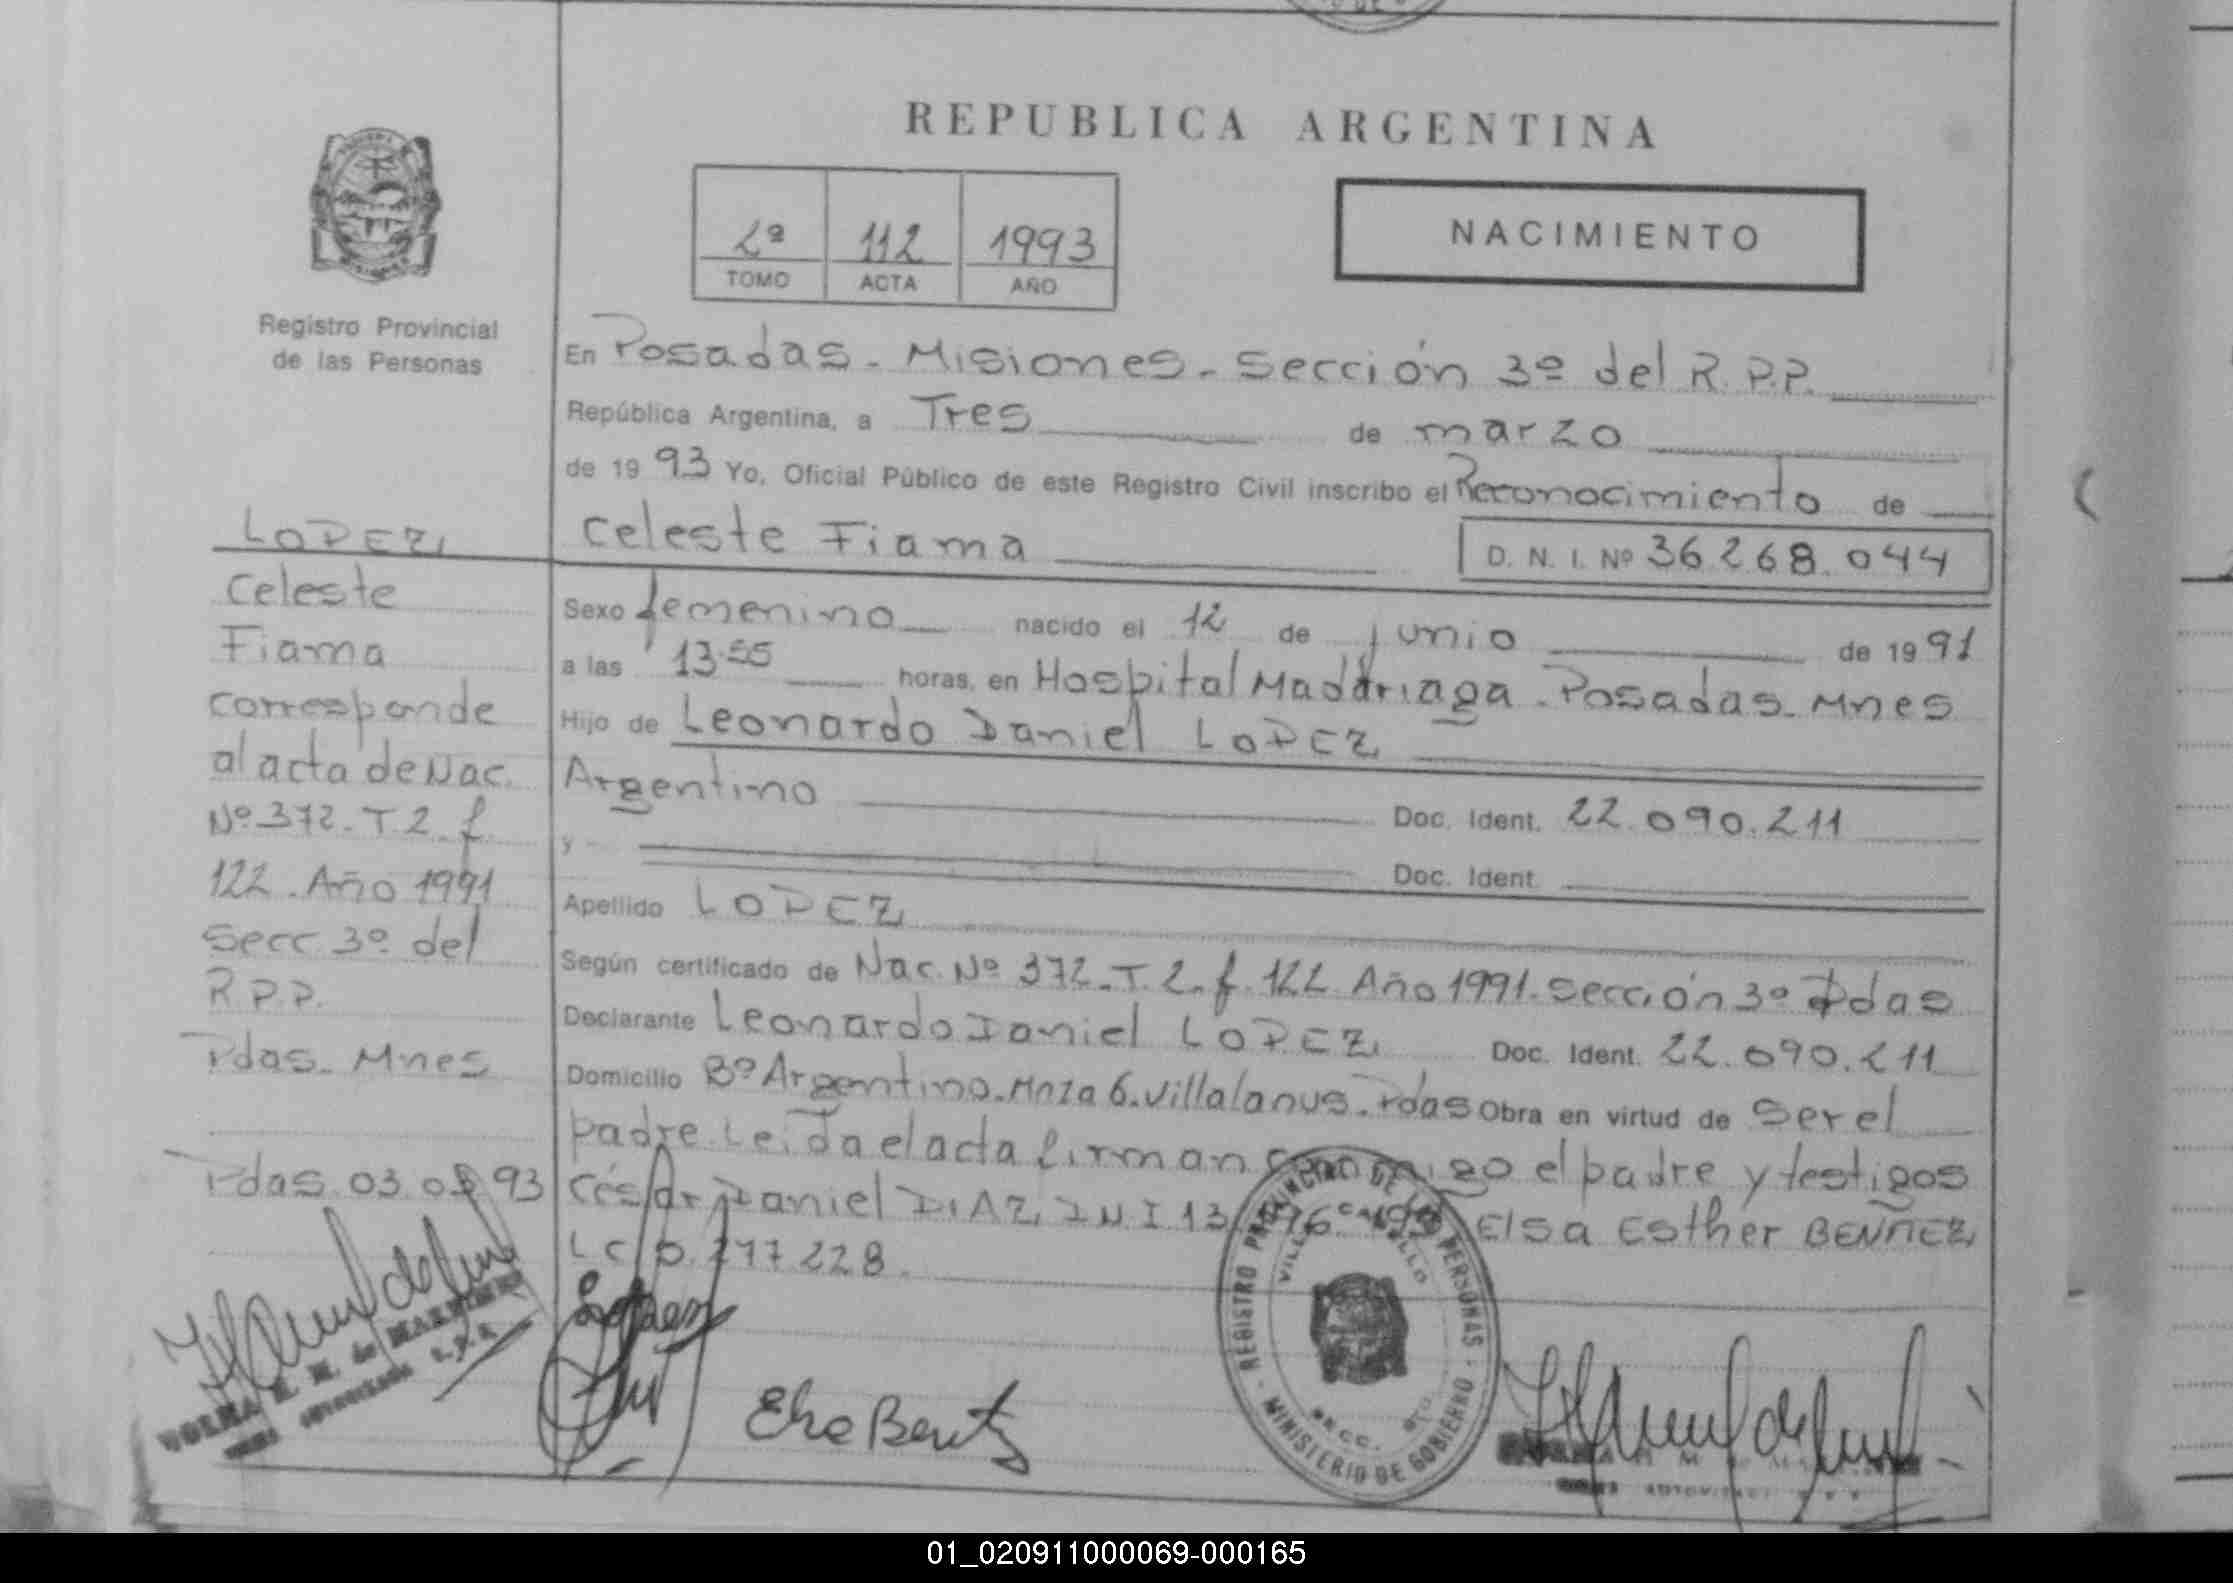 REPUBLICA ARGENTINA
2º 112 1993
TOMO ACTA AÑO
NACIMIENTO
Registro Provincial
de las Personas
En Posadas - Misiones - Sección 3º del R.P.P.
República Argentina, a Tres de marzo
de 1993 Yo, Oficial Público de este Registro Civil inscribo el Reconocimiento de
Celeste Fiama D. N. I. Nº 36.268.044
Sexo femenino nacido el 12 de junio de 1991
a las 13.55 horas, en Hospital Madariaga - Posadas - Mnes
Hijo de Leonardo Daniel LOPEZ
Argentino Doc. Ident. 22.090.211
y - Doc. Ident.
Apellido LOPEZ
Según certificado de Nac. Nº 372 - T. 2 - f. 122 Año 1991. Sección 3º Pdas
Declarante Leonardo Daniel LOPEZ Doc. Ident. 22.090.211
Domicilio Bº Argentino - Mnza 6 - Villalanus - Pdas Obra en virtud de ser el
padre. Leída el acta firman conmigo el padre y testigos
César Daniel DIAZ, DNI 13 Elsa Esther BENITEZ
LC 228
LOPEZ
Celeste
Fiama
corresponde
al acta de Nac.
Nº 372 - T 2 f
122 - Año 1991
Secc. 3º del
R.P.P.
Pdas - Mnes
Pdas 03 93
Lopez
Elsa Benitez
REGISTRO PROVINCIAL DE LAS PERSONAS
MINISTERIO DE GOBIERNO
01_020911000069-000165